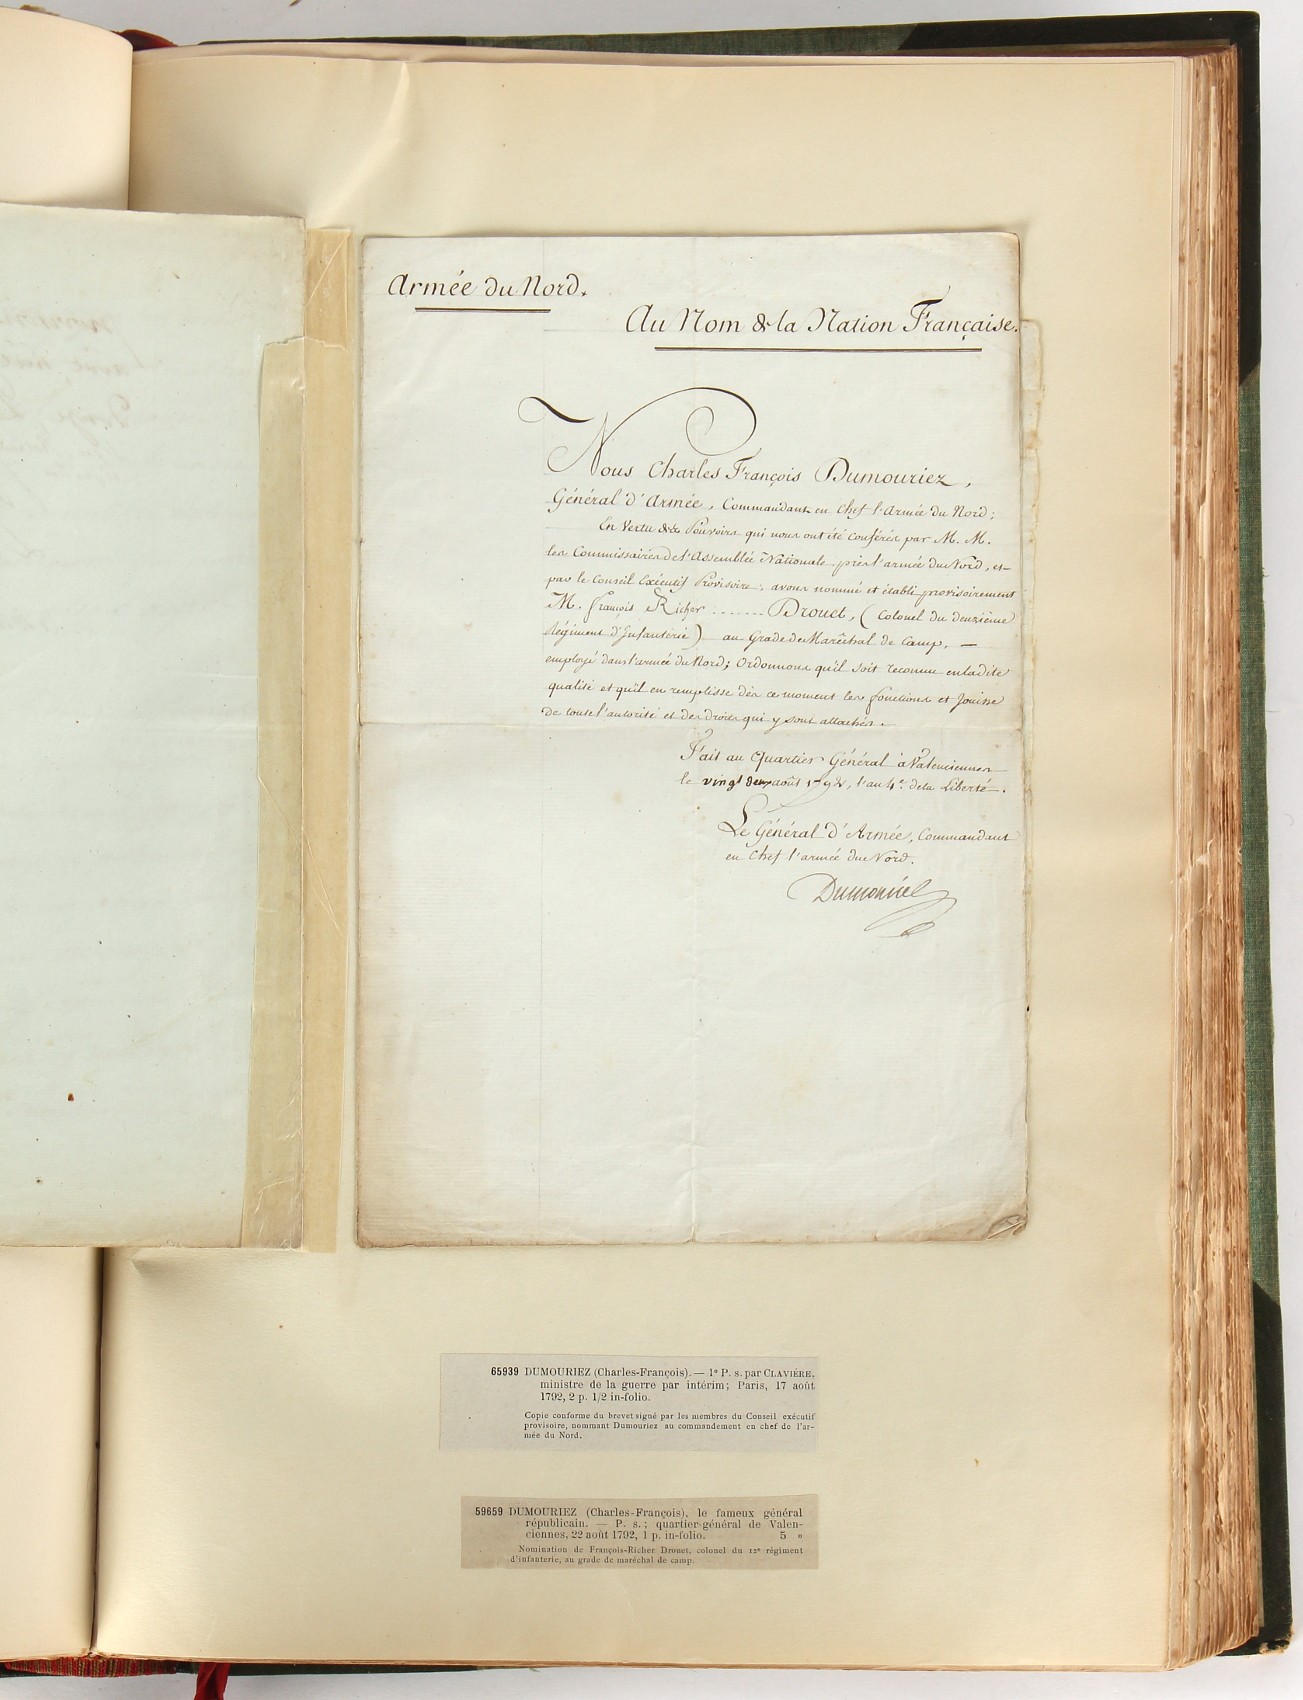 Armée du Nord.
Au Nom de la Nation Française.
Nous Charles François Dumouriez,
Général d'Armée, Commandant en Chef l'Armée du Nord;
En Vertu des Pouvoirs qui nous ont été conférés par M. M.
les Commissaires de l'Assemblée Nationale près l'armée du Nord, et
par le Conseil Exécutif Provisoire, avons nommé et établi provisoirement
M. françois Richer ....... Drouet, (Colonel du deuzième
Régiment d'Infanterie) au Grade de Maréchal de Camp, —
employé dans l'armée du Nord; Ordonnons qu'il soit reconnu en ladite
qualité et qu'il en remplisse dès ce moment les fonctions et Jouisse
de toute l'autorité et des droits qui y sont attachés.
Fait au Quartier Général à Valenciennes
le vingt deux août 1792, l'an 4e. de la Liberté.
Le Général d'Armée, Commandant
en Chef l'armée du Nord.
Dumouriez
65939 DUMOURIEZ (Charles-François). — 1º P. s. par CLAVIÈRE,
ministre de la guerre par intérim; Paris, 17 août
1792, 2 p. 1/2 in-folio.
Copie conforme du brevet signé par les membres du Conseil exécutif
provisoire, nommant Dumouriez au commandement en chef de l'ar-
mée du Nord.
59659 DUMOURIEZ (Charles-François), le fameux général
républicain. — P. s.; quartier-général de Valen-
ciennes, 22 août 1792, 1 p. in-folio. 5 »
Nomination de François-Richer Drouet, colonel du 12e régiment
d'infanterie, au grade de maréchal de camp.